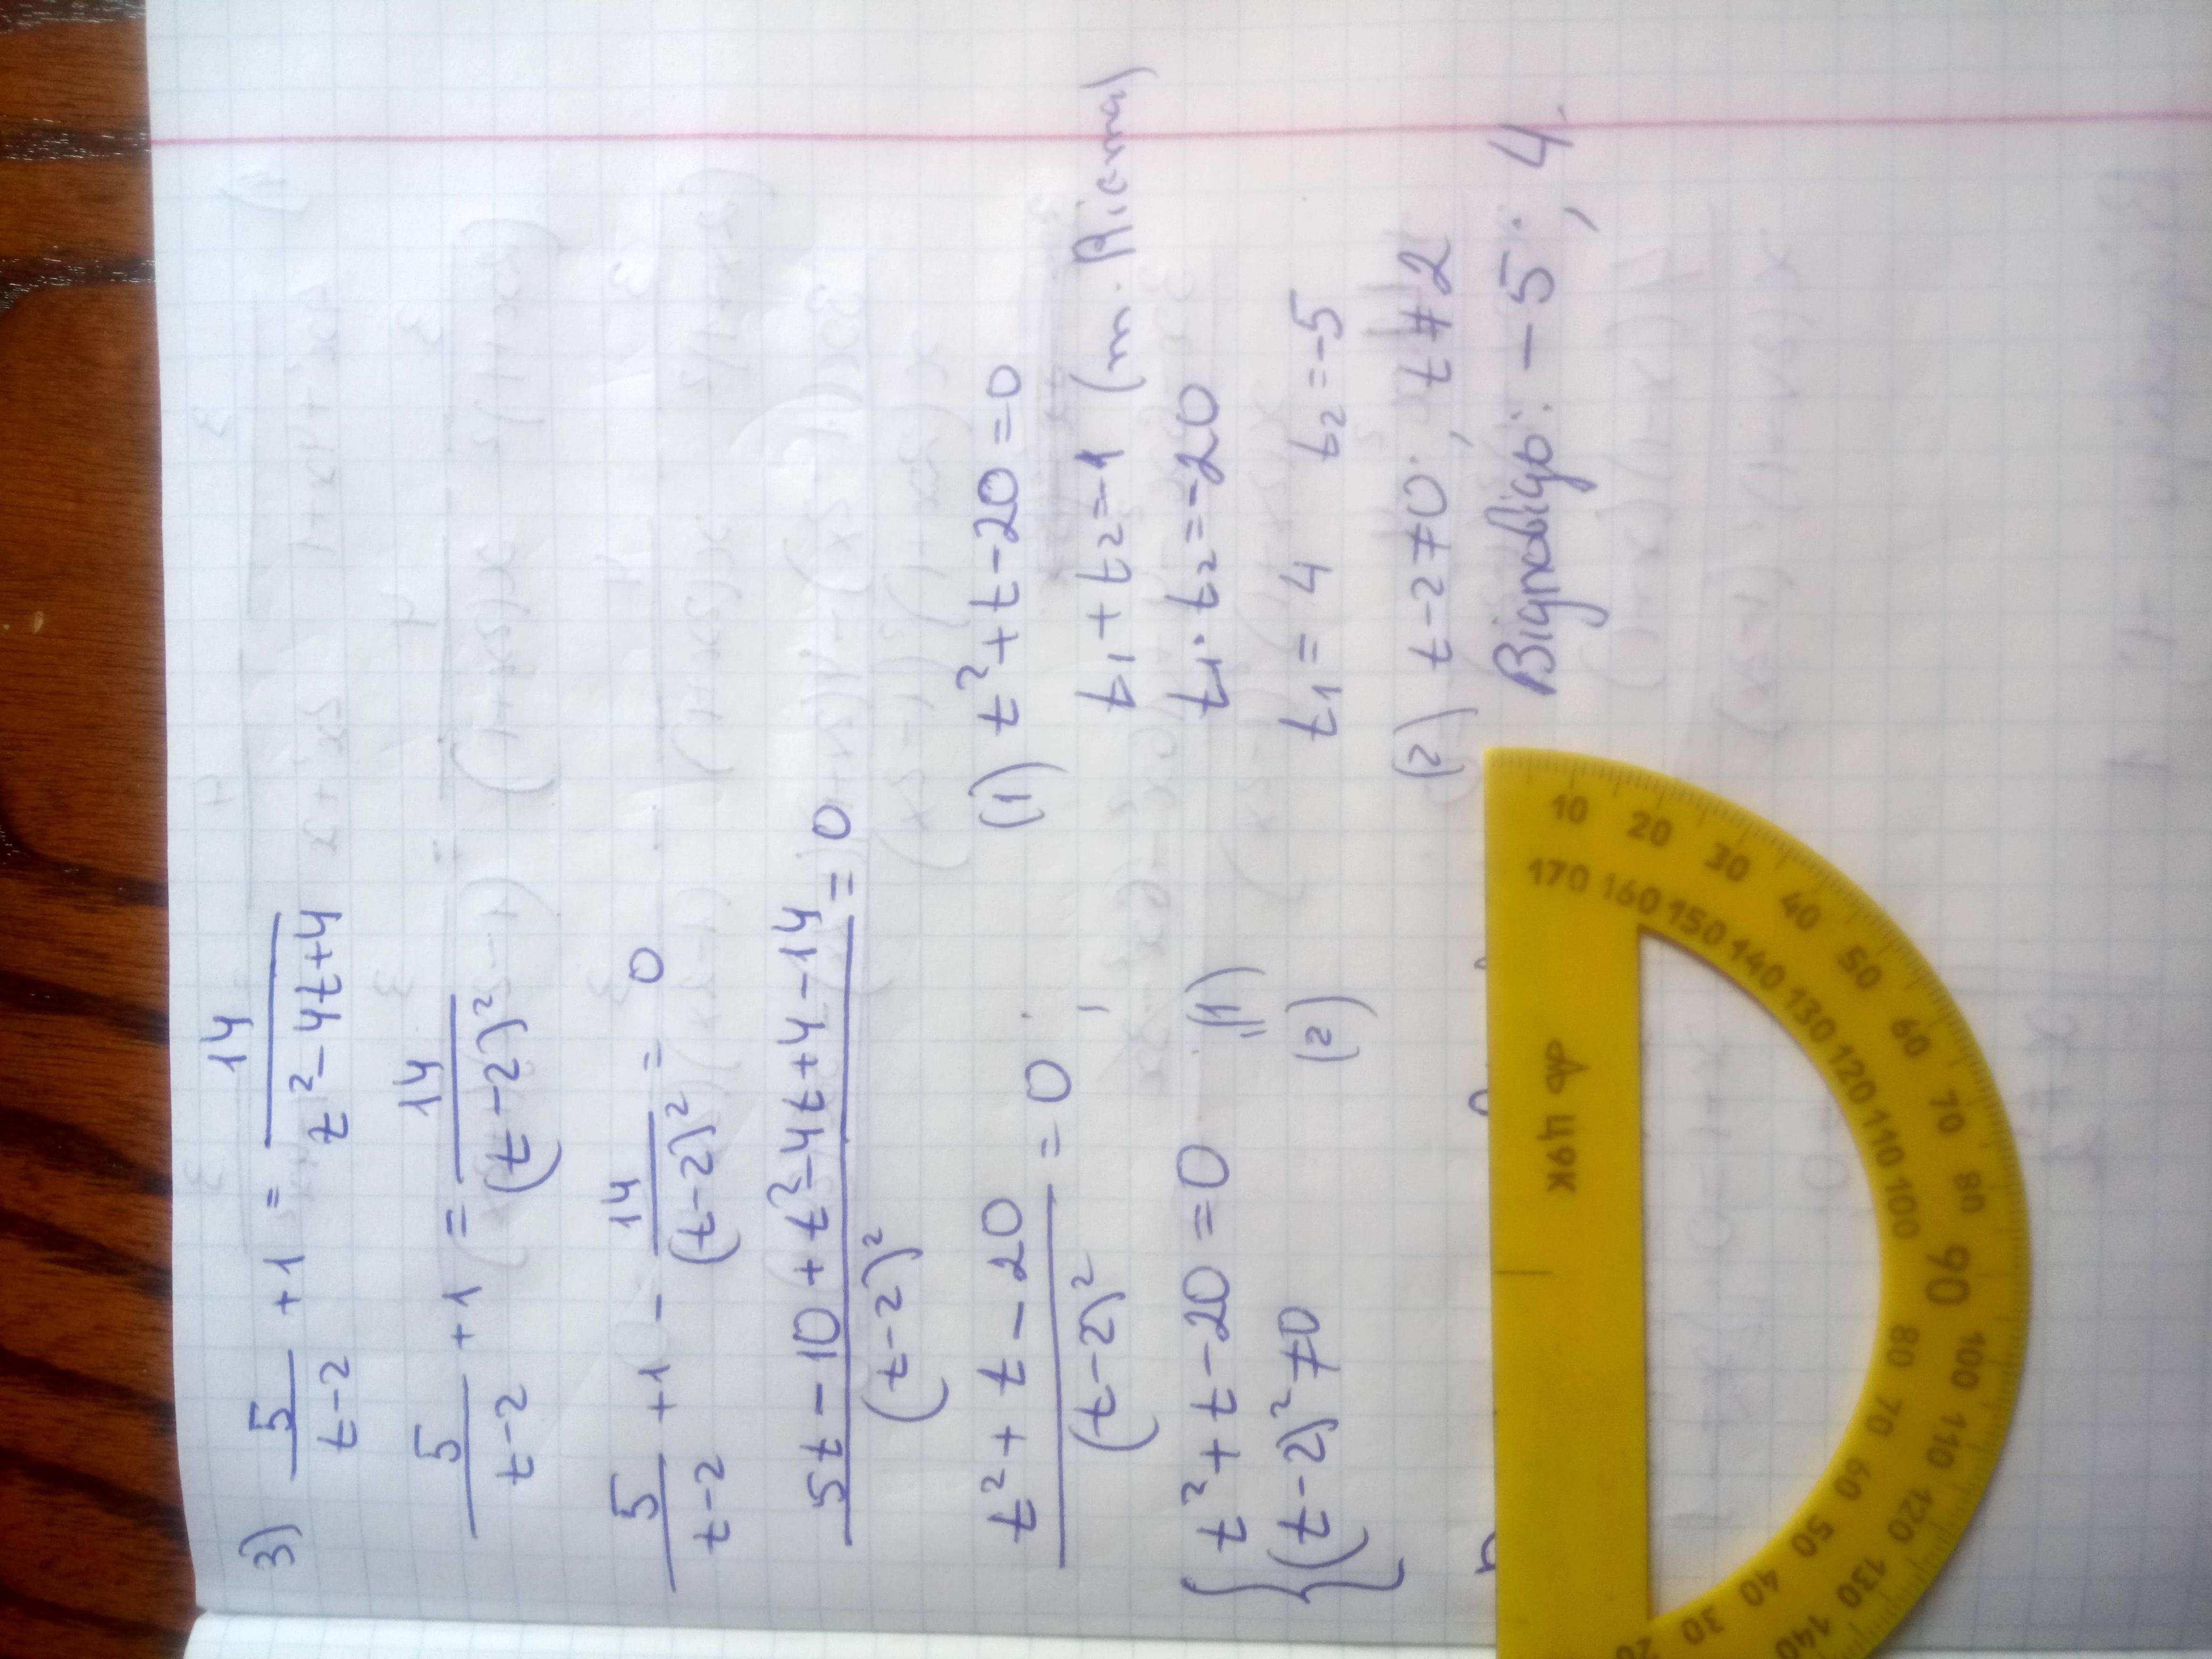 3) 5/(t-2) + 1 = 14/(t²-4t+4)
5/(t-2) + 1 = 14/(t-2)²
5/(t-2) + 1 - 14/(t-2)² = 0
(5t-10+t²-4t+4-14)/(t-2)² = 0
(t²+t-20)/(t-2)² = 0
{ t²+t-20=0 (1)
(t-2)²≠0 (2)
(1) t²+t-20=0
t₁+t₂=-1 (т. Вієта)
t₁·t₂=-20
t₁=4 t₂=-5
(2) t-2≠0; t≠2
Відповідь: -5; 4.
10 20 30 40 50 60 70 80 90 100 110 120 130 140
170 160 150 140 130 120 110 100 80 70 60 50 40 30 20
К9Ц ФР